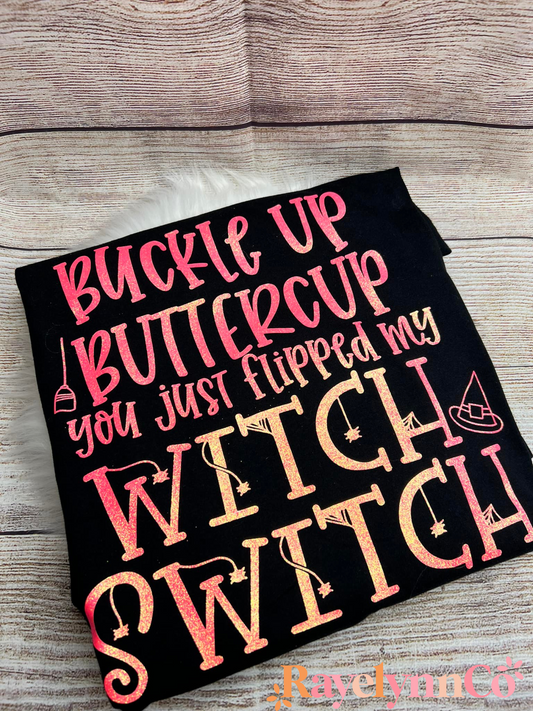 BUCKLE UP
BUTTERCUP
you just flipped my
WITCH
SWITCH
RaveLynnCo